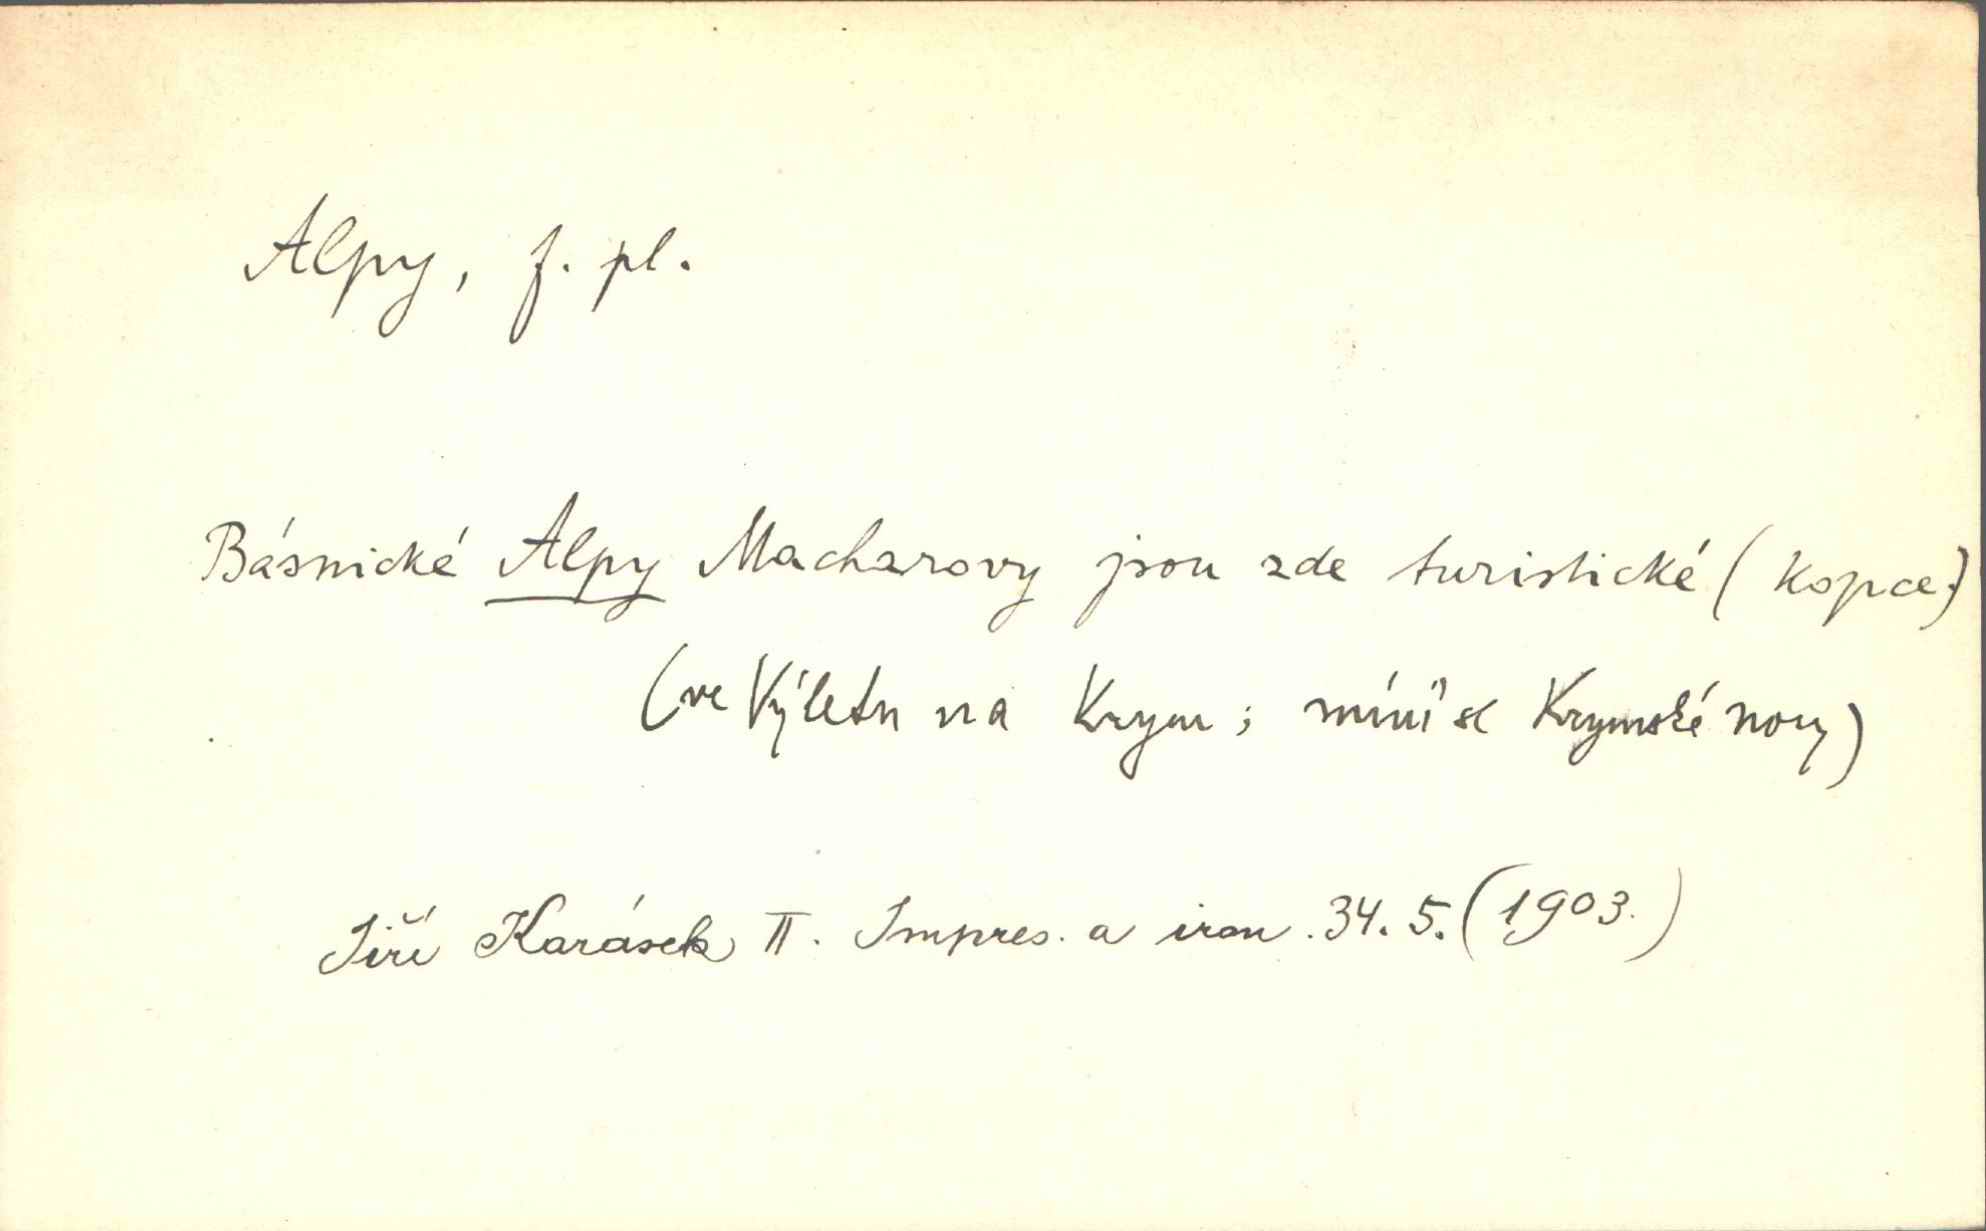 Alpy, f. pl.
Básnické Alpy Macharovy jsou zde turistické (kopce.)
(ve Výletu na Krym; míní se Krymské hory)
Jiří Karásek II. Impres. a iron. 34. 5. (1903.)